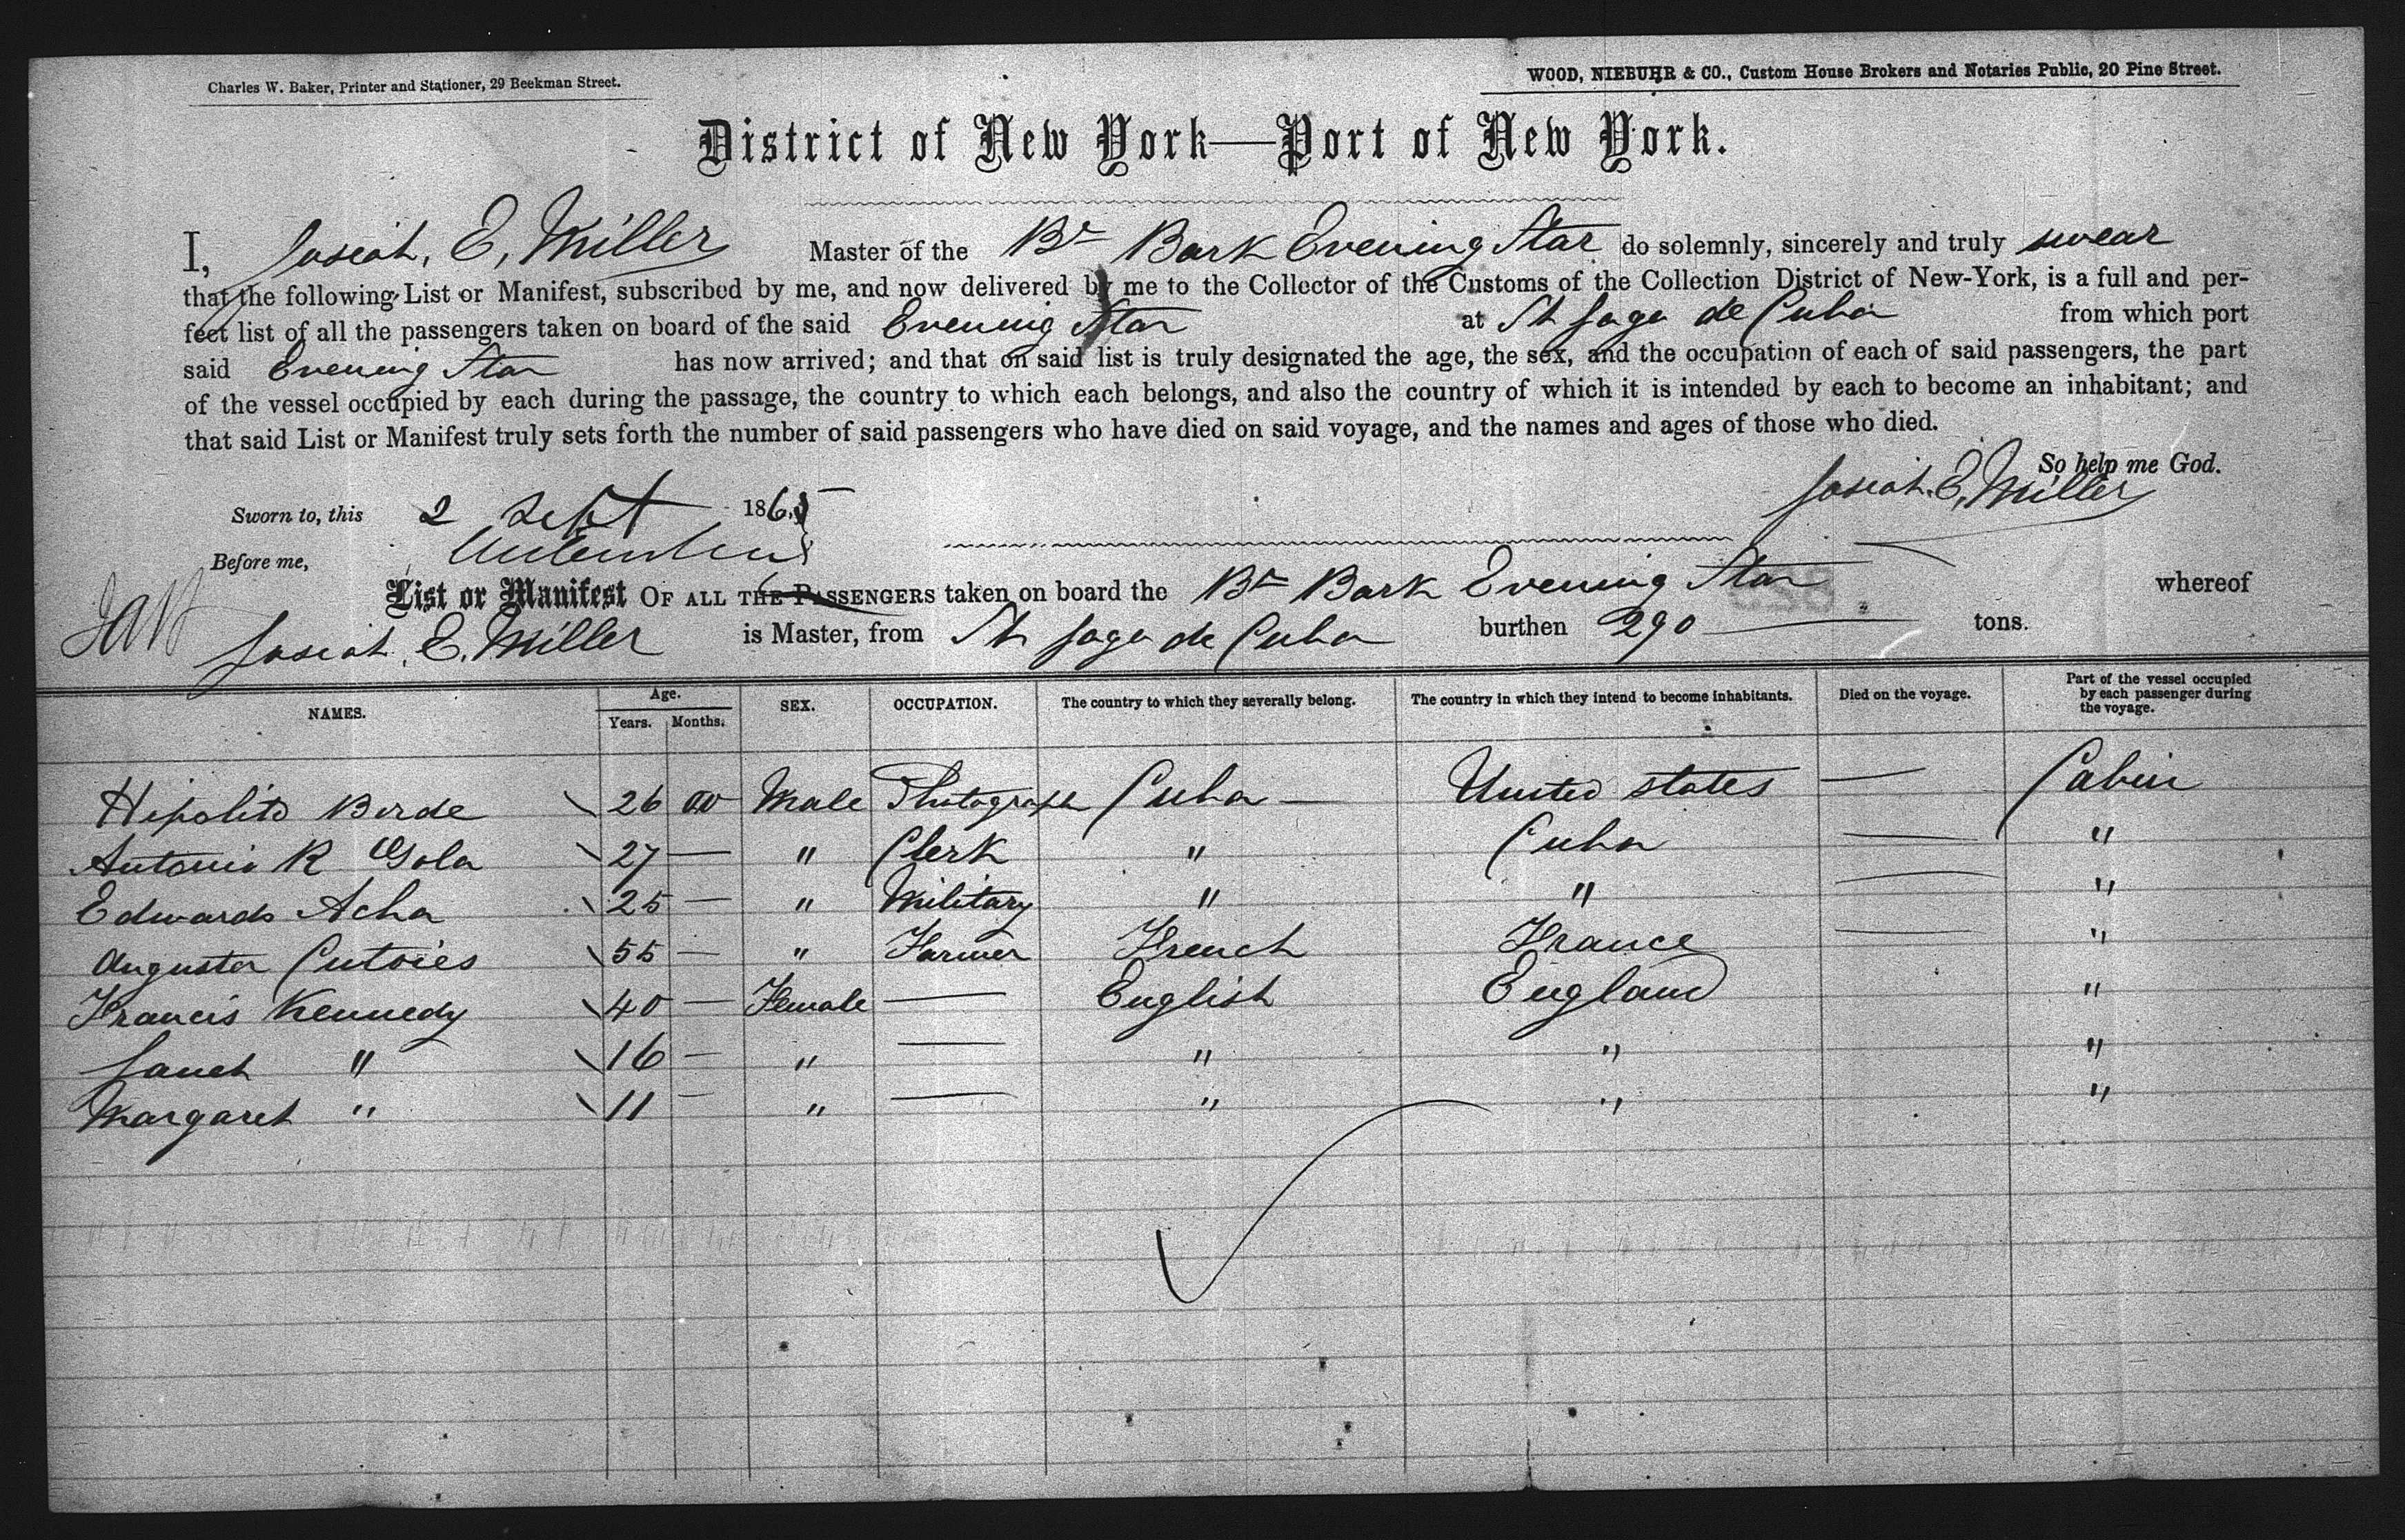 Charles W. Baker, Printer and Stationer, 29 Beekman Street.
WOOD, NIEBUHR & CO., Custom House Brokers and Notaries Public, 20 Pine Street.
District of New York—Port of New York.
I, Josiah, E, Miller Master of the Br Bark Evening Star do solemnly, sincerely and truly swear
that the following List or Manifest, subscribed by me, and now delivered by me to the Collector of the Customs of the Collection District of New-York, is a full and per-
fect list of all the passengers taken on board of the said Evening Star at St Jago de Cuba from which port
said Evening Star has now arrived; and that on said list is truly designated the age, the sex, and the occupation of each of said passengers, the part
of the vessel occupied by each during the passage, the country to which each belongs, and also the country of which it is intended by each to become an inhabitant; and
that said List or Manifest truly sets forth the number of said passengers who have died on said voyage, and the names and ages of those who died.
So help me God.
Josiah. E. Miller
Sworn to, this 2 Sept 1865
Before me,
List or Manifest OF ALL THE PASSENGERS taken on board the Br Bark Evening Star whereof
Josiah. E. Miller is Master, from St Jago de Cuba burthen 290 tons.
NAMES. Age. Years. Months. SEX. OCCUPATION. The country to which they severally belong. The country in which they intend to become inhabitants. Died on the voyage. Part of the vessel occupied by each passenger during the voyage.
Hipolito Borde 26 00 Male Photograph Cuba — United states — Cabin
Antonio R Gola 27 — " Clerk " Cuba — "
Edwards Acha 25 — " Military " " — "
Auguster Cutoies 55 — " Farmer French France — "
Francis Kennedy 40 — Female — English England "
Janet " 16 — " — " " "
Margaret " 11 — " — " " "